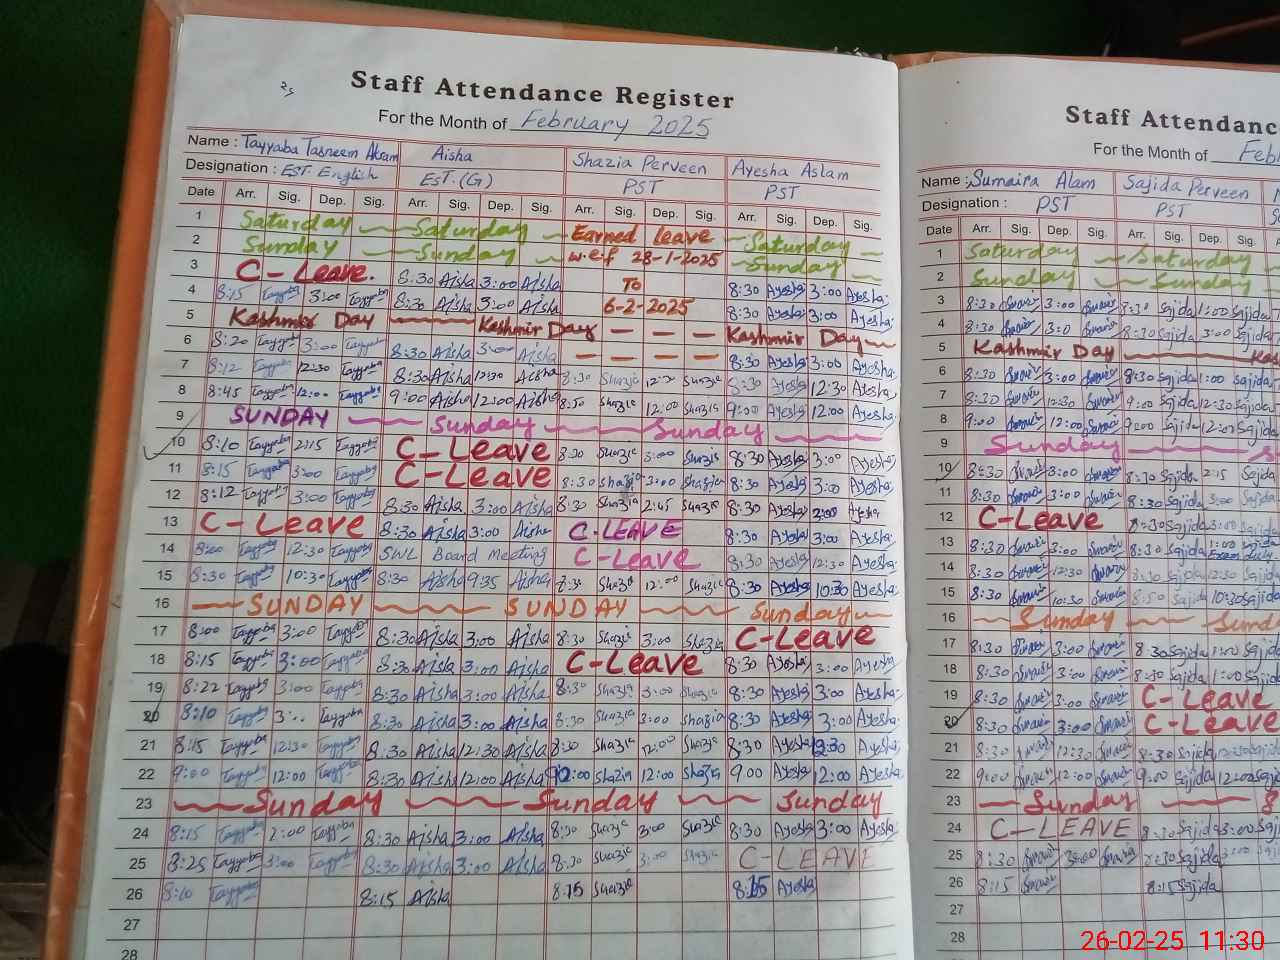 Staff Attendance Register
For the Month of February 2025
Name : Tayyaba Tasneem Akram Aisha Shazia Perveen Ayesha Aslam
Designation : EST. English EST. (G) PST PST
Date Arr. Sig. Dep. Sig. Arr. Sig. Dep. Sig. Arr. Sig. Dep. Sig. Arr. Sig. Dep. Sig.
1 Saturday Saturday Earned leave Saturday
2 Sunday Sunday w.e.f 28-1-2025 Sunday
3 C-Leave. 8:30 Aisha 3:00 Aisha To 8:30 Ayesha 3:00 Ayesha
4 8:15 Tayyaba 3:00 Tayyaba 8:30 Aisha 3:00 Aisha 6-2-2025 8:30 Ayesha 3:00 Ayesha
5 Kashmir Day Kashmir Day - - - Kashmir Day
6 8:20 Tayyaba 3:00 Tayyaba 8:30 Aisha 3:00 Aisha - - - - 8:30 Ayesha 3:00 Ayesha
7 8:12 Tayyaba 12:30 Tayyaba 8:30 Aisha 12:30 Aisha 8:30 Shazia Shazia 8:30 Ayesha 12:30 Ayesha
8 8:45 Tayyaba 12:00 Tayyaba 9:00 Aisha 12:00 Aisha 8:50 Shazia 12:00 Shazia 9:00 Ayesha 12:00 Ayesha
9 SUNDAY Sunday Sunday
10 8:10 Tayyaba 2:15 Tayyaba C-Leave 8:30 Shazia 3:00 Shazia 8:30 Ayesha 3:00 Ayesha
11 8:15 Tayyaba 3:00 Tayyaba C-Leave 8:30 Shazia 3:00 Shazia 8:30 Ayesha 3:00 Ayesha
12 8:12 Tayyaba 3:00 Tayyaba 8:30 Aisha 3:00 Aisha 8:30 Shazia 2:45 Shazia 8:30 Ayesha Ayesha
13 C-Leave 8:30 Aisha 3:00 Aisha C-LEAVE 8:30 Ayesha 3:00 Ayesha
14 8:00 Tayyaba 12:30 Tayyaba SWL Board meeting C-Leave 8:30 Ayesha 12:30 Ayesha
15 8:30 Tayyaba 10:30 Tayyaba 8:30 Aisha 9:35 Aisha Shazia 12:00 Shazia 8:30 Ayesha 10:30 Ayesha
16 SUNDAY SUNDAY Sunday
17 8:00 Tayyaba 3:00 Tayyaba 8:30 Aisha 3:00 Aisha 8:30 Shazia 3:00 Shazia C-Leave
18 8:15 Tayyaba 3:00 Tayyaba 8:30 Aisha 3:00 Aisha C-Leave 8:30 Ayesha 3:00 Ayesha
19 8:22 Tayyaba 3:00 Tayyaba 8:30 Aisha 3:00 Aisha 8:30 Shazia 3:00 Shazia 8:30 Ayesha 3:00 Ayesha
20 8:10 Tayyaba Tayyaba 8:30 Aisha 3:00 Aisha 8:30 Shazia 3:00 Shazia 8:30 Ayesha 3:00 Ayesha
21 8:15 Tayyaba 12:30 Tayyaba 8:30 Aisha 12:30 Aisha 8:30 Shazia Shazia 8:30 Ayesha Ayesha
22 9:00 Tayyaba 12:00 Tayyaba 8:30 Aisha 12:00 Aisha Shazia 12:00 Shazia 9:00 Ayesha 12:00 Ayesha
23 Sunday Sunday Sunday
24 8:15 Tayyaba 2:00 Tayyaba 8:30 Aisha 3:00 Aisha 8:30 Shazia 3:00 Shazia 8:30 Ayesha 3:00 Ayesha
25 8:25 Tayyaba 3:00 Tayyaba 8:30 Aisha 3:00 Aisha 8:30 Shazia 3:00 Shazia C-LEAVE
26 8:10 Tayyaba 8:15 Aisha 8:15 Shazia 8:15 Ayesha
27
28
Staff Attendanc
For the Month of Feb
Name : Sumaira Alam Sajida Perveen
Designation : PST PST
Date Arr. Sig. Dep. Sig. Arr. Sig. Dep. Sig.
1 Saturday Saturday
2 Sunday Sunday
3 8:30 3:00 Sajida Sajida
4 8:30 3:0 8:30 Sajida 3:00 Sajida
5 Kashmir Day
6 8:30 3:00 8:30 Sajida Sajida
7 8:30 12:30 9:00 Sajida 12:30 Sajida
8 9:00 12:00 9:00 Sajida 12:00 Sajida
9 Sunday
10 8:30 3:00 8:30 Sajida 2:15 Sajida
11 8:30 3:00 8:30 Sajida Sajida
12 C-Leave Sajida 3:00 Sajida
13 8:30 3:00 8:30 Sajida
14 8:30 12:30 Sajida 12:30 Sajida
15 8:30 10:30 Sajida 10:30 Sajida
16 Sunday
17 8:30 3:00 8:30 Sajida Sajida
18 8:30 3:00 8:30 Sajida Sajida
19 8:30 3:00 C-Leave
20 8:30 3:00 C-Leave
21 8:30 12:30 8:30 Sajida Sajida
22 9:00 12:00 9:00 Sajida 12:00 Sajida
23 Sunday
24 C-LEAVE 8:30 Sajida 3:00 Sajida
25 8:30 3:00 8:30 Sajida Sajida
26 8:15 8:15 Sajida
27
28
26-02-25 11:30